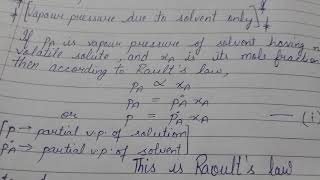 [Vapour pressure due to solvent only]
If pA is vapour pressure of solvent having
volatile solute, and xA is its mole fraction
then according to Rault's law,
pA ∝ xA
pA = p°A xA
or p = p°A xA — (i)
[p → partial v.p. of solution]
pA → partial v.p. of solvent
This is Raoult's law